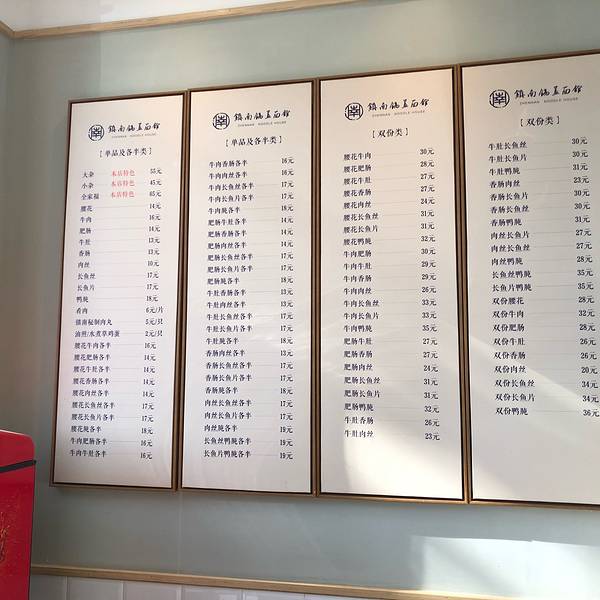 鎮南鍋蓋面館
ZHENNAN NOODLE HOUSE
[ 单品及各半类 ]
大杂 本店特色 55元
小杂 本店特色 45元
全家福 本店特色 65元
腰花 14元
牛肉 16元
肥肠 14元
牛肚 13元
香肠 13元
肉丝 10元
长鱼丝 17元
长鱼片 17元
鸭腕 18元
肴肉 6元/片
镇南秘制肉丸 5元/只
油煎/水煮草鸡蛋 2元/只
腰花牛肉各半 16元
腰花肥肠各半 14元
腰花牛肚各半 14元
腰花香肠各半 14元
腰花肉丝各半 14元
腰花长鱼丝各半 17元
腰花长鱼片各半 17元
腰花腕各半 18元
牛肉肥肠各半 16元
牛肉牛肚各半 16元
鎮南鍋蓋面館
ZHENNAN NOODLE HOUSE
[ 单品及各半类 ]
牛肉香肠各半 16元
牛肉肉丝各半 16元
牛肉长鱼丝各半 17元
牛肉长鱼片各半 17元
牛肉腕各半 18元
肥肠牛肚各半 14元
肥肠肉丝各半 14元
肥肠长鱼丝各半 17元
肥肠长鱼片各半 17元
肥肠腕各半 18元
牛肚香肠各半 13元
牛肚肉丝各半 13元
牛肚长鱼丝各半 17元
牛肚长鱼片各半 17元
牛肚腕各半 18元
香肠肉丝各半 13元
香肠长鱼丝各半 17元
香肠长鱼片各半 17元
香肠腕各半 18元
肉丝长鱼丝各半 17元
肉丝长鱼片各半 17元
肉丝腕各半 18元
长鱼丝鸭腕各半 19元
长鱼片鸭腕各半 19元
鎮南鍋蓋面館
ZHENNAN NOODLE HOUSE
[ 双份类 ]
腰花牛肉 30元
腰花肥肠 28元
腰花牛肚 27元
腰花香肠 27元
腰花肉丝 24元
腰花长鱼丝 31元
腰花长鱼片 31元
腰花鸭腕 32元
牛肉肥肠 30元
牛肉牛肚 29元
牛肉香肠 29元
牛肉肉丝 26元
牛肉长鱼丝 33元
牛肉长鱼片 33元
牛肉鸭腕 35元
肥肠牛肚 27元
肥肠香肠 27元
肥肠肉丝 24元
肥肠长鱼丝 31元
肥肠长鱼片 31元
肥肠鸭腕 32元
牛肚香肠 26元
牛肚肉丝 23元
鎮南鍋蓋面館
ZHENNAN NOODLE HOUSE
[ 双份类 ]
牛肚长鱼丝 30元
牛肚长鱼片 30元
牛肚鸭腕 31元
香肠肉丝 23元
香肠长鱼片 30元
香肠长鱼丝 30元
香肠鸭腕 31元
肉丝长鱼片 27元
肉丝长鱼丝 27元
肉丝鸭腕 28元
长鱼丝鸭腕 35元
长鱼片鸭腕 35元
双份腰花 28元
双份牛肉 32元
双份肥肠 28元
双份牛肚 26元
双份香肠 26元
双份肉丝 20元
双份长鱼丝 34元
双份长鱼片 34元
双份鸭腕 36元